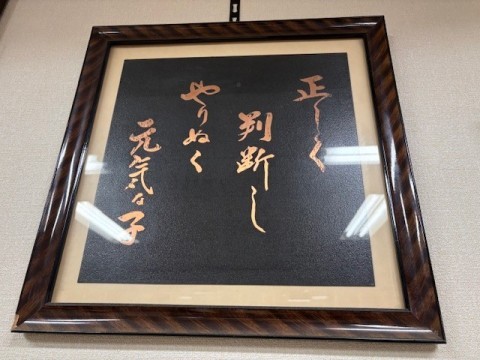 正しく
判断し
やりぬく
元気な子